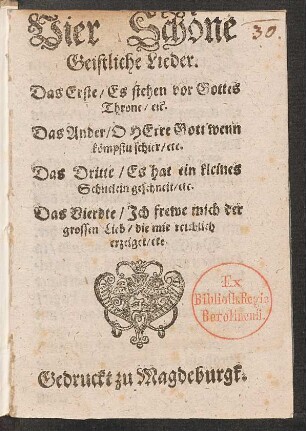 Vier Schöne
30.
Geistliche Lieder.
Das Erste / Es stehen vor Gottes
Throne / etc.
Das Ander / O HErre Gott wenn
kömpstu schier / etc.
Das Dritte / Es hat ein kleines
Schnelein geschneit / etc.
Das Vierdte / Ich frewe mich der
grossen Lieb / die mir reichlich
erzeiget / etc.
Ex
Biblioth. Regia
Berolinensi.
Gedruckt zu Magdeburgk.